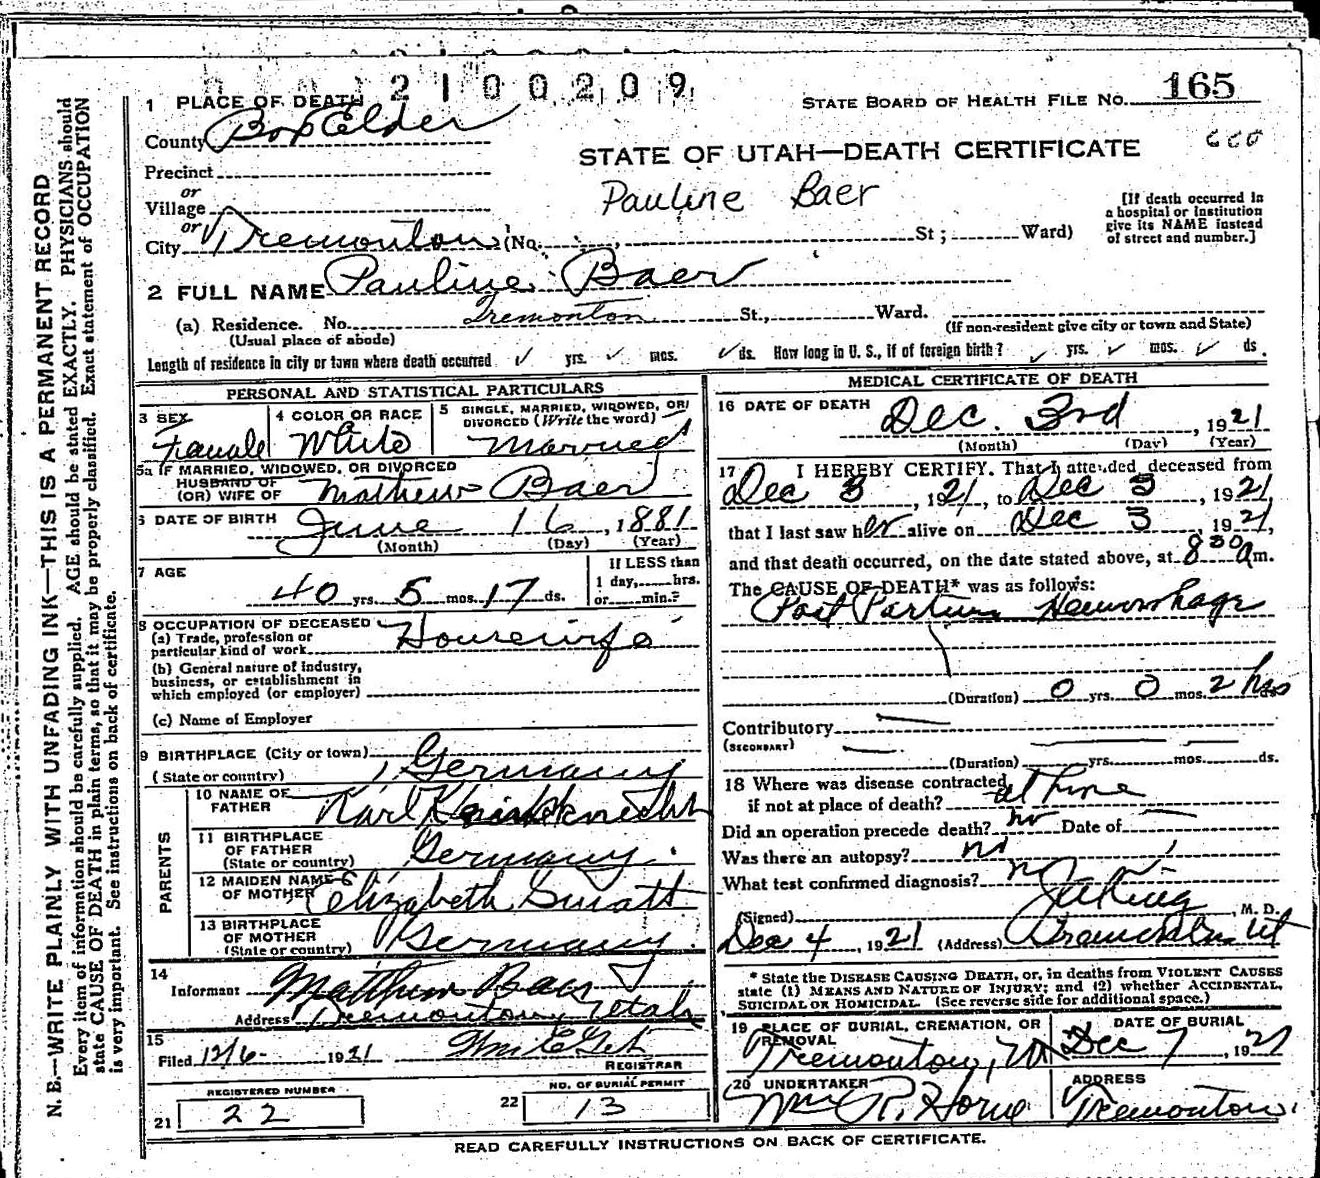 2100209
1 PLACE OF DEATH
STATE BOARD OF HEALTH FILE NO. 165
County Box Elder
STATE OF UTAH—DEATH CERTIFICATE
Precinct
Pauline Baer
or
Village
or
City Tremonton (No. , St; Ward)
[If death occurred in
a hospital or institution
give its NAME instead
of street and number.]
2 FULL NAME Pauline Baer
(a) Residence. No. Tremonton St., Ward.
(Usual place of abode)
(If non-resident give city or town and State)
Length of residence in city or town where death occurred yrs. mos. ds. How long in U. S., if of foreign birth? yrs. mos. ds.
PERSONAL AND STATISTICAL PARTICULARS
3 SEX
Female
4 COLOR OR RACE
White
5 SINGLE, MARRIED, WIDOWED, OR
DIVORCED (Write the word)
Married
5a IF MARRIED, WIDOWED, OR DIVORCED
HUSBAND OF
(OR) WIFE OF Mathew Baer
6 DATE OF BIRTH June 16, 1881
(Month) (Day) (Year)
7 AGE
40 yrs. 5 mos. 17 ds.
If LESS than
1 day, hrs.
or min.?
8 OCCUPATION OF DECEASED
(a) Trade, profession or
particular kind of work Housewife
(b) General nature of industry,
business, or establishment in
which employed (or employer)
(c) Name of Employer
9 BIRTHPLACE (City or town)
(State or country) Germany
PARENTS
10 NAME OF
FATHER Karl
11 BIRTHPLACE
OF FATHER
(State or country) Germany
12 MAIDEN NAME
OF MOTHER Elizabeth
13 BIRTHPLACE
OF MOTHER
(State or country) Germany
14
Informant Matthew Baer
Address Tremonton, Utah
15
Filed 12/6- 1921
REGISTRAR
REGISTERED NUMBER
21 22
NO. OF BURIAL PERMIT
22 13
MEDICAL CERTIFICATE OF DEATH
16 DATE OF DEATH
Dec. 3rd, 1921
(Month) (Day) (Year)
17 I HEREBY CERTIFY. That I attended deceased from
Dec 3, 1921, to Dec 3, 1921,
that I last saw her alive on Dec 3, 1921,
and that death occurred, on the date stated above, at 8 30 a m.
The CAUSE OF DEATH* was as follows:
Post Partum Hemorrhage
(Duration) 0 yrs. 0 mos. 2 hrs ds.
Contributory
(SECONDARY)
(Duration) yrs. mos. ds.
18 Where was disease contracted
if not at place of death? at home
Did an operation precede death? no Date of
Was there an autopsy? no
What test confirmed diagnosis?
(Signed) , M. D.
Dec 4, 1921 (Address) Tremonton Ut
* State the DISEASE CAUSING DEATH, or, in deaths from VIOLENT CAUSES
state (1) MEANS AND NATURE OF INJURY; and (2) whether ACCIDENTAL,
SUICIDAL OR HOMICIDAL. (See reverse side for additional space.)
19 PLACE OF BURIAL, CREMATION, OR
REMOVAL
Tremonton, Ut
DATE OF BURIAL
Dec 7, 1921
20 UNDERTAKER
Wm R. Horne
ADDRESS
Tremonton.
READ CAREFULLY INSTRUCTIONS ON BACK OF CERTIFICATE.
N. B.—WRITE PLAINLY WITH UNFADING INK—THIS IS A PERMANENT RECORD
Every item of information should be carefully supplied. AGE should be stated EXACTLY. PHYSICIANS should
state CAUSE OF DEATH in plain terms, so that it may be properly classified. Exact statement of OCCUPATION
is very important. See instructions on back of certificate.